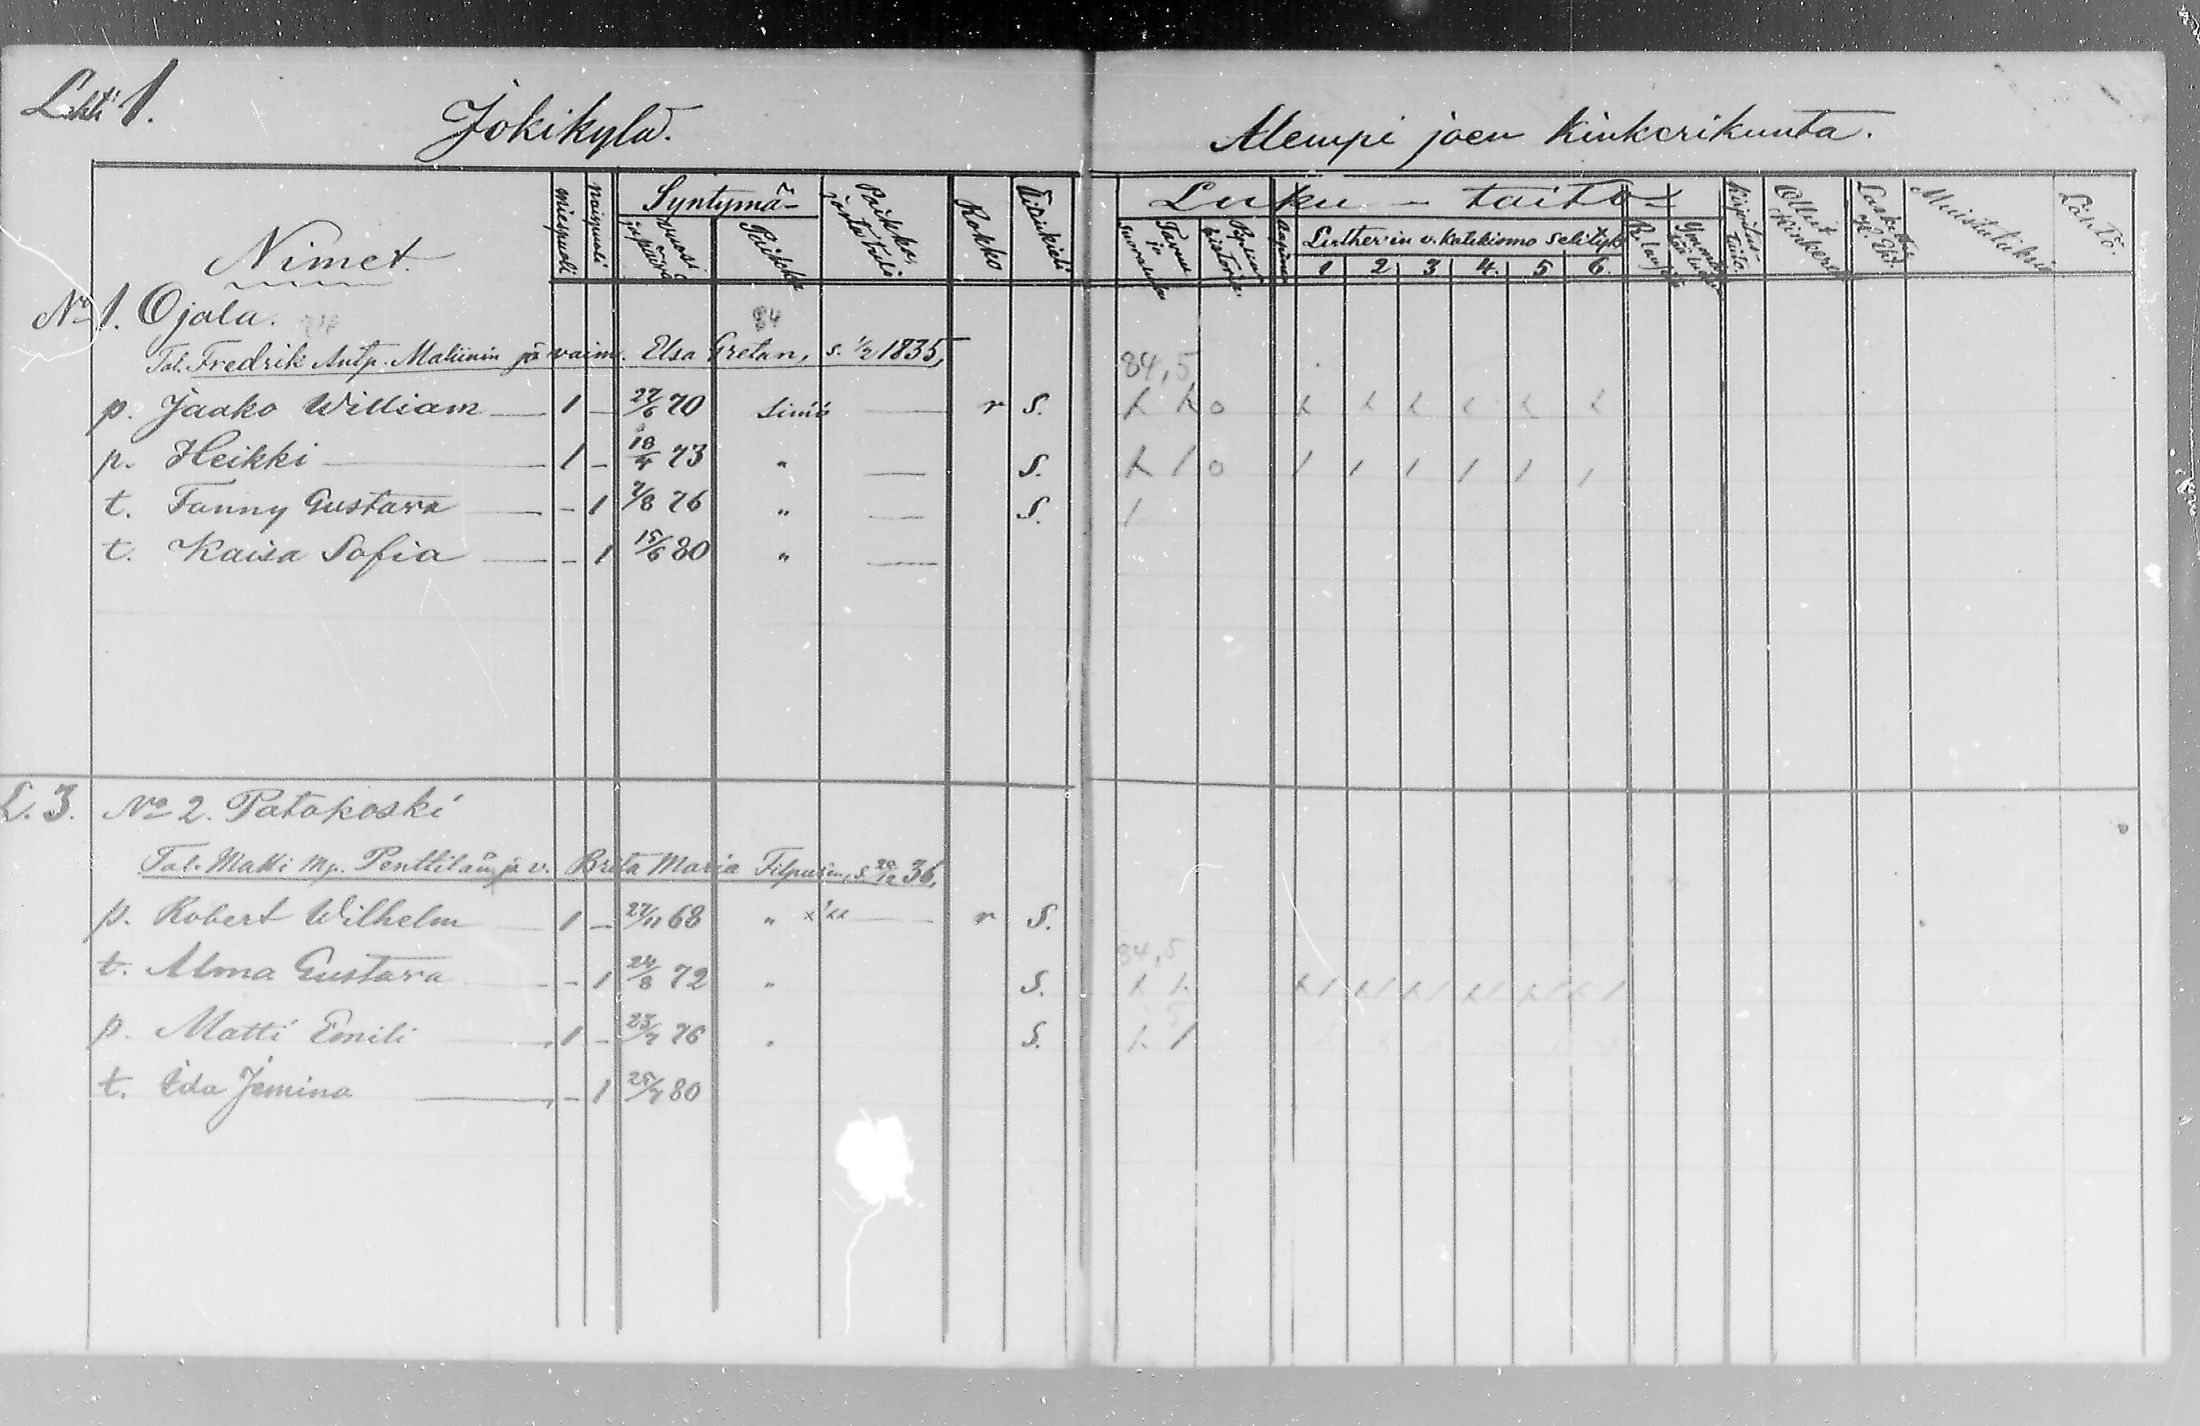 Lehti 1.
Jokikylä.
Alempi joen Kinkerikunta.
Nimet.
miespuoli
naispuoli
Syntymä-
vuosi ja päivä
Paikka
Paikka, josta tuli
Rokko
Äitinkieli
Luku-taito
Tavuu ja suoraluku
Piplian historia
Aapinen
Lutherin v. katekismo selityk
1 2 3 4. 5 6.
Kirjoitus-taito.
Ollut Kinkereillä
Muistutuksia
Lähtö.
No 1. Ojala.
84
Tal. Fredrik Antp. Maliinin ja vaim. Elsa Gretan, s. 1/2 1835,
84,5
p. Jaako William 1 - 27/6 70 Simo r S.
p. Heikki 1 - 18/4 73 " S.
t. Fanny Gustava - 1 7/8 76 " S.
t. Kaisa Sofia - 1 15/6 80 "
L. 3. No 2. Patokoski
Tal. Matti Mp. Penttilän ja v. Brita Maria Filpusin, s. 20/12 36,
p. Robert Wilhelm 1 - 27/11 68 " r S.
84,5
t. Alma Gustava - 1 24/8 72 " S.
p. Matti Emili 1 - 23/7 76 " S.
t. Ida Jemina - 1 25/7 80